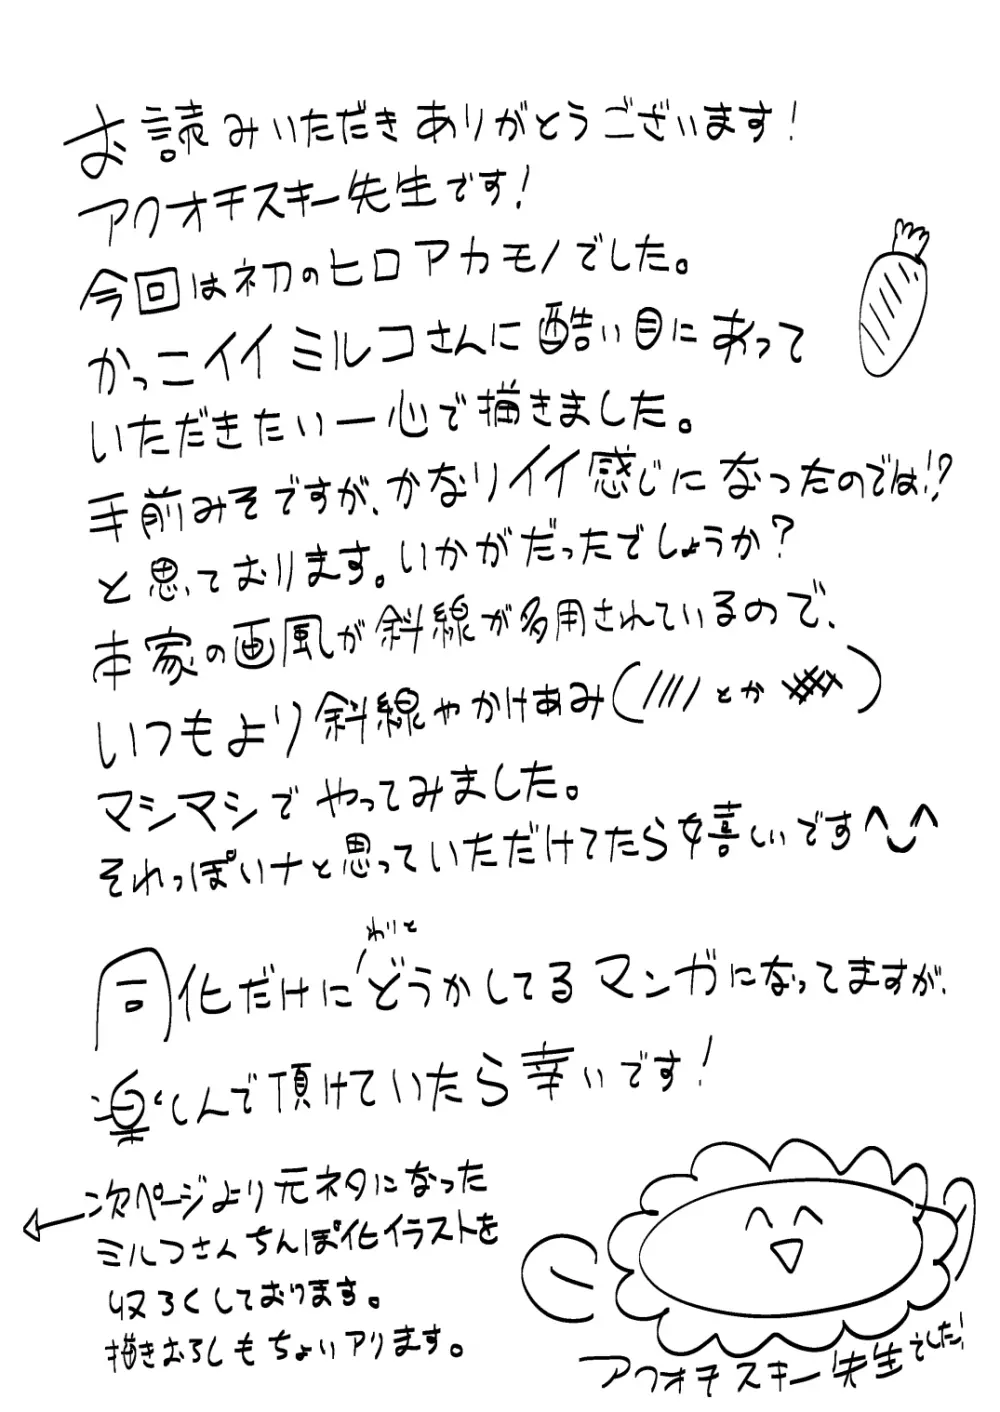 お読みいただきありがとうございます!
アクオチスキー先生です!
今回は初のヒロアカモノでした。
かっこイイミルコさんに酷い目にあって
いただきたい一心で描きました。
手前みそですが、かなりイイ感じになったのでは!?
と思っております。いかがだったでしょうか?
本家の画風が斜線が多用されているので、
いつもより斜線やかけあみ(////とか)
マシマシでやってみました。
それっぽいナと思っていただけてたら嬉しいです^^
わりと
同化だけにどうかしてるマンガになってますが、
楽しんで頂けていたら幸いです!
次ページより元ネタになった
ミルコさんちんぽ化イラストを
収ろくしております。
描きおろしもちょいアリます。
アクオチスキー先生でした!